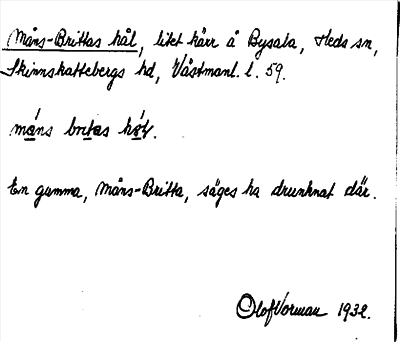 Måns-Brittas hål, litet kärr å Bysala, Heds sn,
Skinnskattebergs hd, Västmanl. l. 59.
måns britas hól.
En gumma, Måns-Britta, säges ha drunknat där.
Olof Vorman 1932.